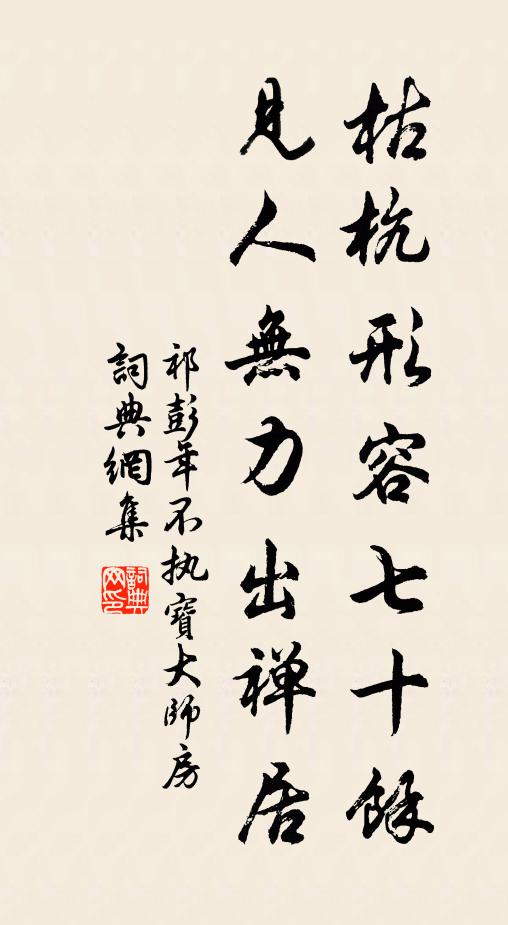 枯杭形容七十餘
見人無力出禅居
祁彭年不执寶大師房
詞典網集
詞典網印